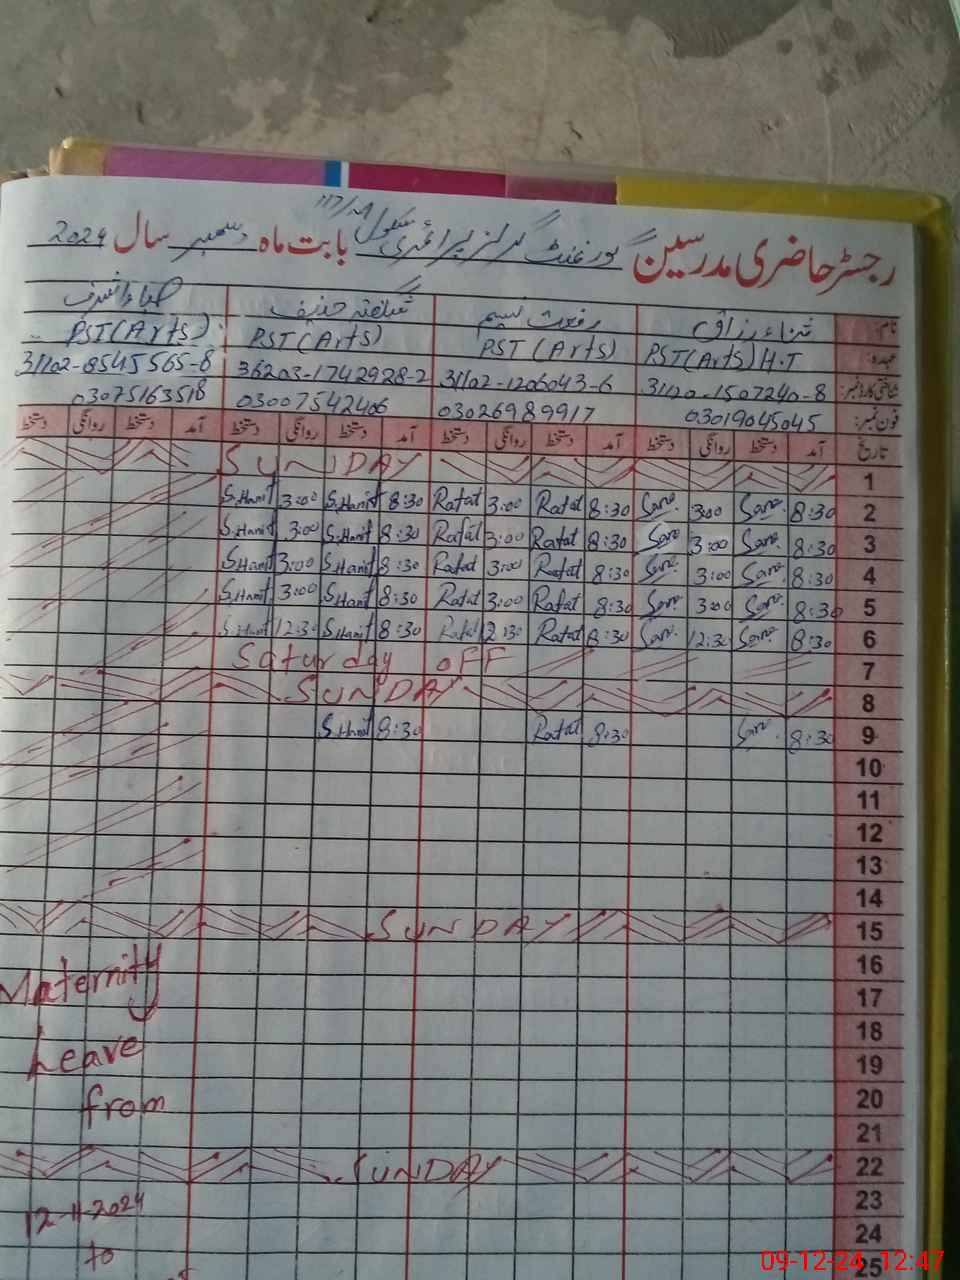 رجسٹر حاضری مدرسین گورنمنٹ گرلز پرائمری سکول بابت ماہ دسمبر سال 2024
نام: ثناء رزاق رفعت نسیم شگفتہ حنیف
عہدہ: PST(Arts) H.T PST (Arts) PST (Arts) PST(Arts)
شناختی کارڈ نمبر: 31120-1507240-8 31102-1206043-6 36203-1742928-2 31102-8545565-8
فون نمبر: 03019045045 03026989917 03007542406 03075163518
تاریخ آمد دستخط روانگی دستخط آمد دستخط روانگی دستخط آمد دستخط روانگی دستخط آمد دستخط روانگی دستخط
SUNDAY 1
S.Hanif 3:00 S.Hanif 8:30 Rafat 3:00 Rafat 8:30 Sana. 3:00 Sana. 8:30 2
S.Hanif 3:00 S.Hanif 8:30 Rafat 3:00 Rafat 8:30 Sana 3:00 Sana. 8:30 3
S.Hanif 3:00 S.Hanif 8:30 Rafat 3:00 Rafat 8:30 Sana. 3:00 Sana. 8:30 4
S.Hanif 3:00 S.Hanif 8:30 Rafat 3:00 Rafat 8:30 Sana. 3:00 Sana. 8:30 5
S.Hanif 12:30 S.Hanif 8:30 Rafat 12:30 Rafat 8:30 Sana. 12:30 Sana. 8:30 6
Saturday OFF 7
SUNDAY 8
S.Hanif 8:30 Rafat 8:30 Sana. 8:30 9
10
11
12
13
14
SUNDAY 15
16
Maternity 17
18
Leave 19
from 20
21
SUNDAY 22
12-11-2024 23
to 24
25
09-12-24 12:47